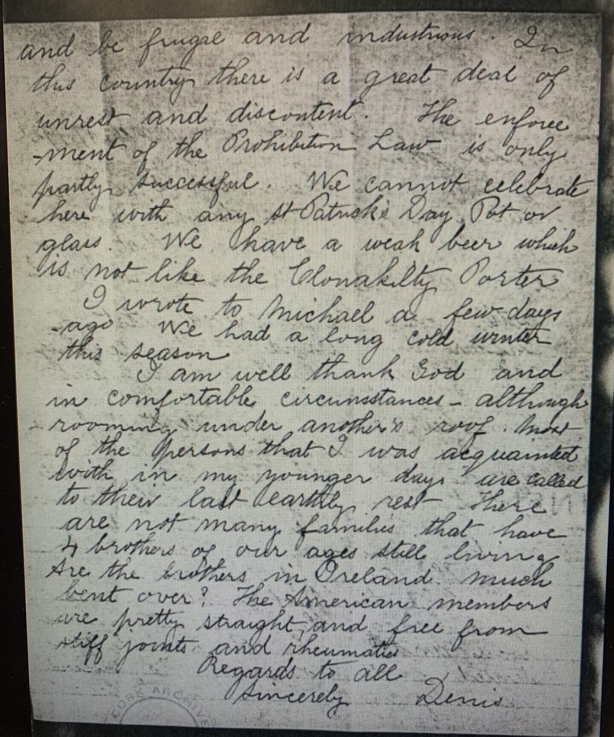 and be frugal and industrious. In
this country there is a great deal of
unrest and discontent. The enforce
-ment of the Prohibition Law is only
partly successful. We cannot celebrate
here with any St Patrick's Day Pot or
glass. We have a weak beer which
is not like the Clonakilty Porter
I wrote to Michael a few days
ago We had a long cold winter
this season
I am well thank God and
in comfortable circumstances - although
rooming under another's roof. Most
of the persons that I was acquainted
with in my younger days are called
to their last earthly rest There
are not many families that have
4 brothers of our ages still living
Are the brothers in Ireland much
bent over? The American members
are pretty straight, and free from
stiff joints and rheumatics
Regards to all
Sincerely Denis
CORK ARCHIVES